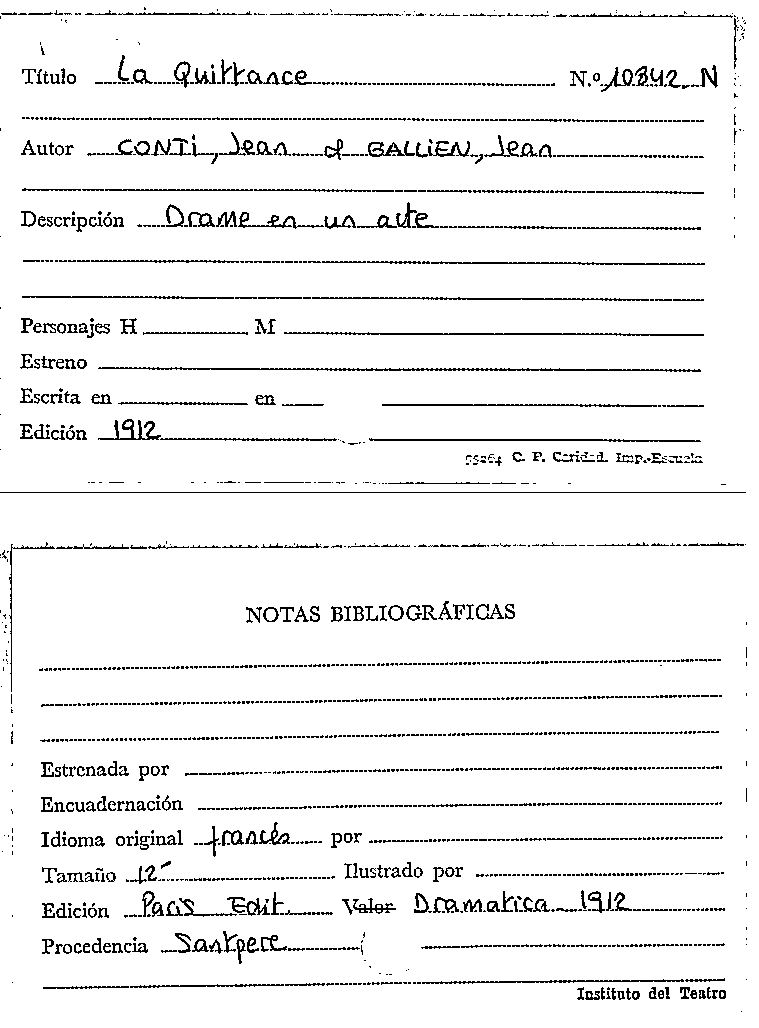 Título La Quittance N.º 10342 N
Autor CONTi, Jean et GALLIEN, Jean
Descripción Drame en un acte
Personajes H M
Estreno
Escrita en en
Edición 1912
55264 C. P. Caridad. Imp.-Escuela
NOTAS BIBLIOGRÁFICAS
Estrenada por
Encuadernación
Idioma original francés por
Tamaño 12º Ilustrado por
Edición Paris Edit. Valor Dramatica 1912
Procedencia Santpere
Instituto del Teatro